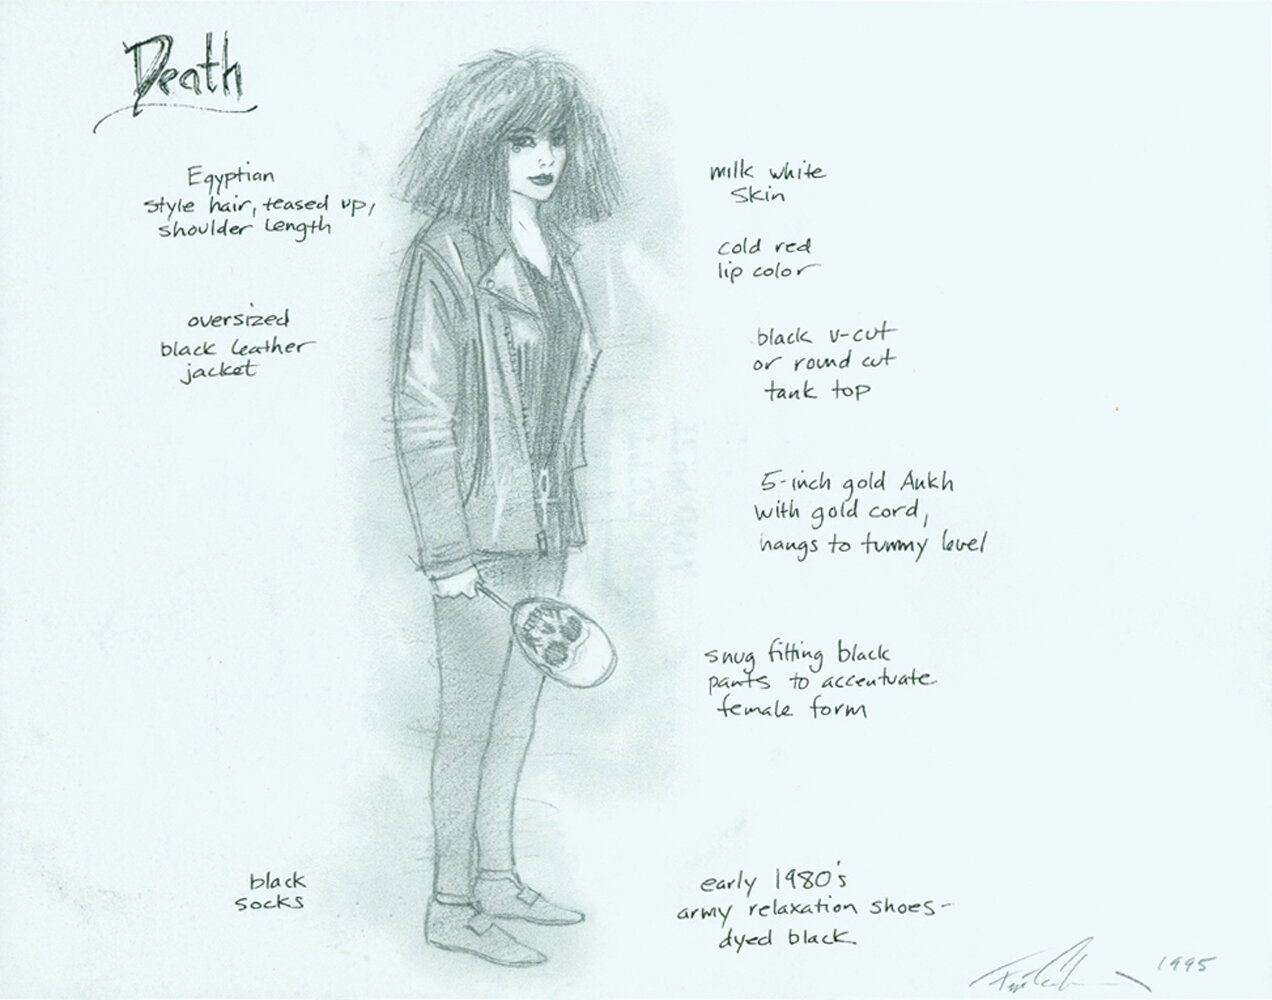 Death
Egyptian
style hair, teased up,
shoulder length
milk white
skin
cold red
lip color
oversized
black leather
jacket
black v-cut
or round cut
tank top
5-inch gold Ankh
with gold cord,
hangs to tummy level
snug fitting black
pants to accentuate
female form
black
socks
early 1980's
army relaxation shoes-
dyed black
1995